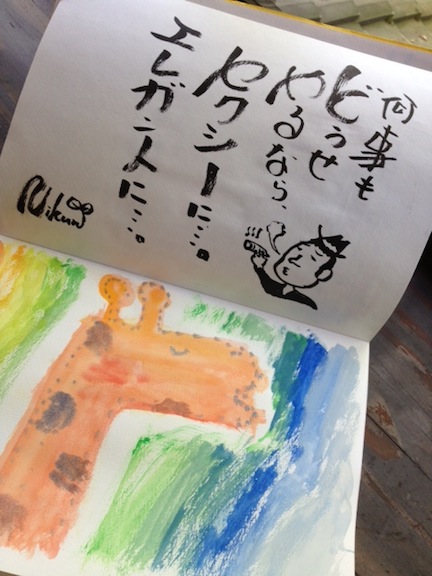 何事も
どうせ
やるなら、
セクシーに…。
エレガントに…。
Nikun